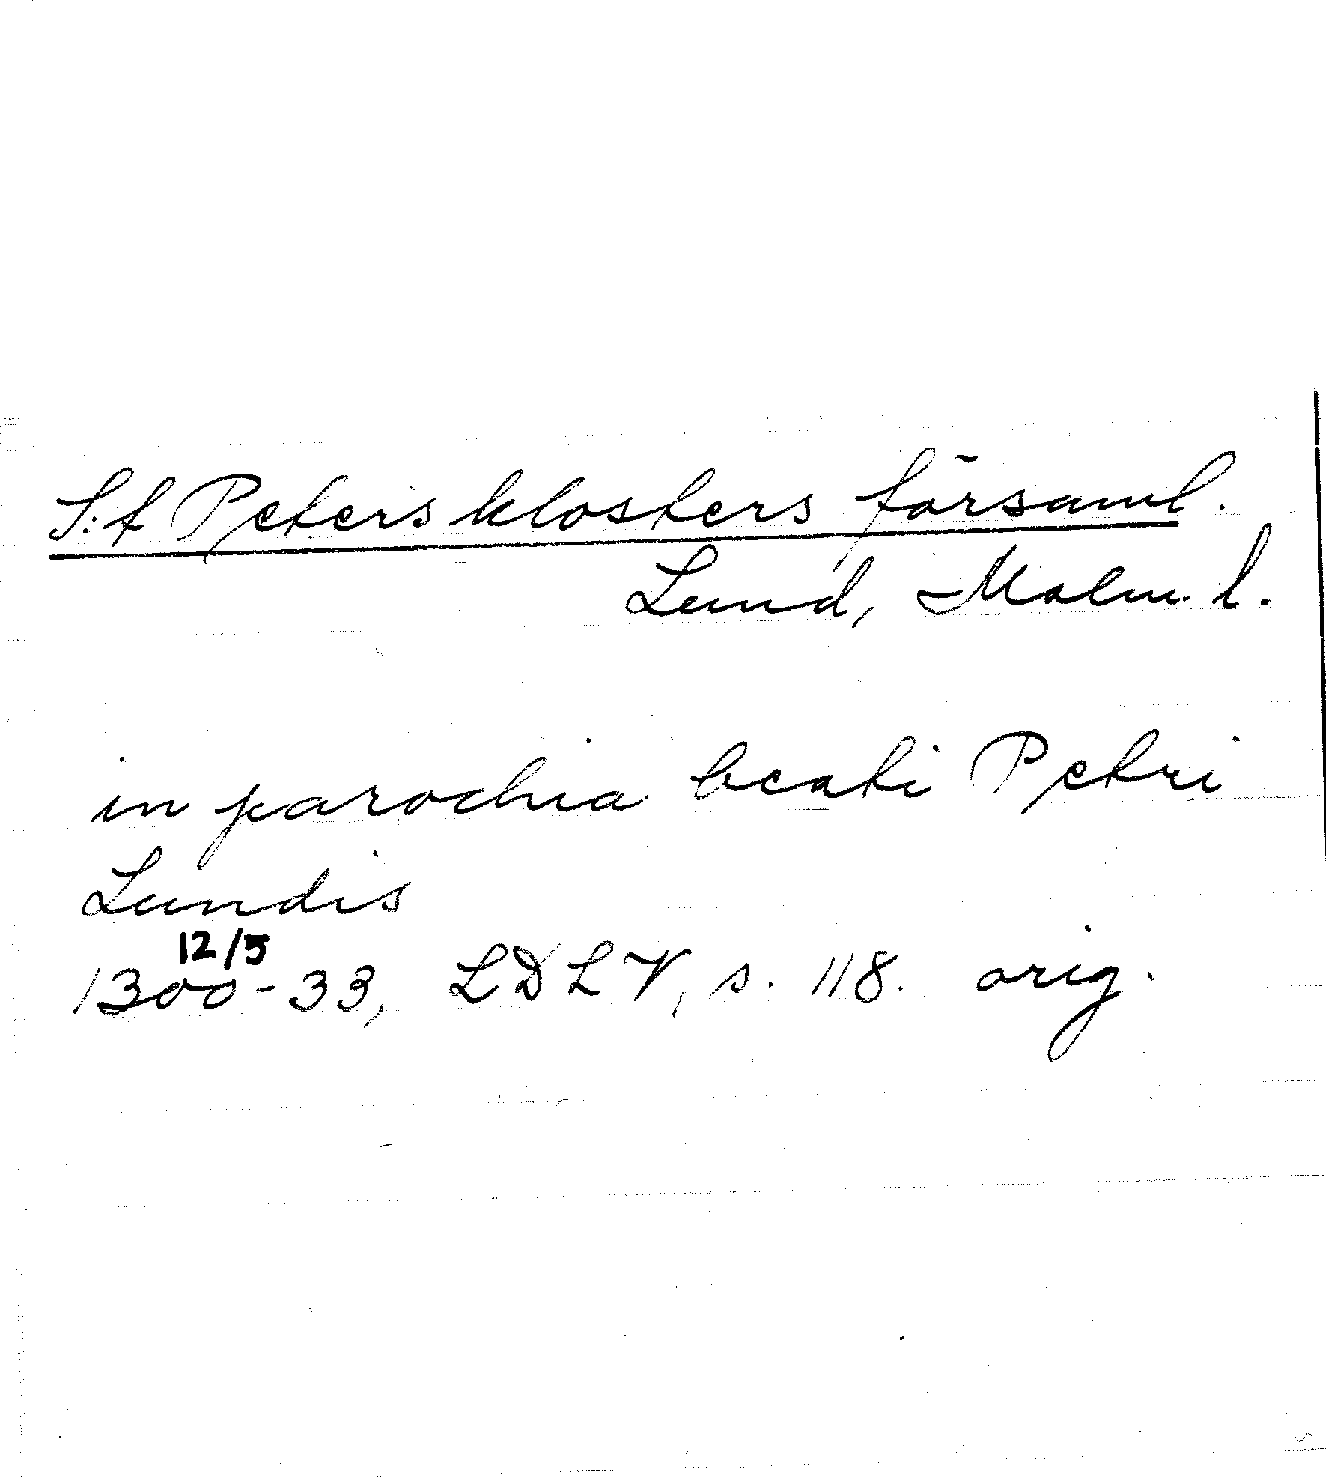 S:t Petersklosters församl.
Lund, Malm. l.
in parochia beati Petri
Lundis
12/5
1300-33, LDLV, s. 118. orig.